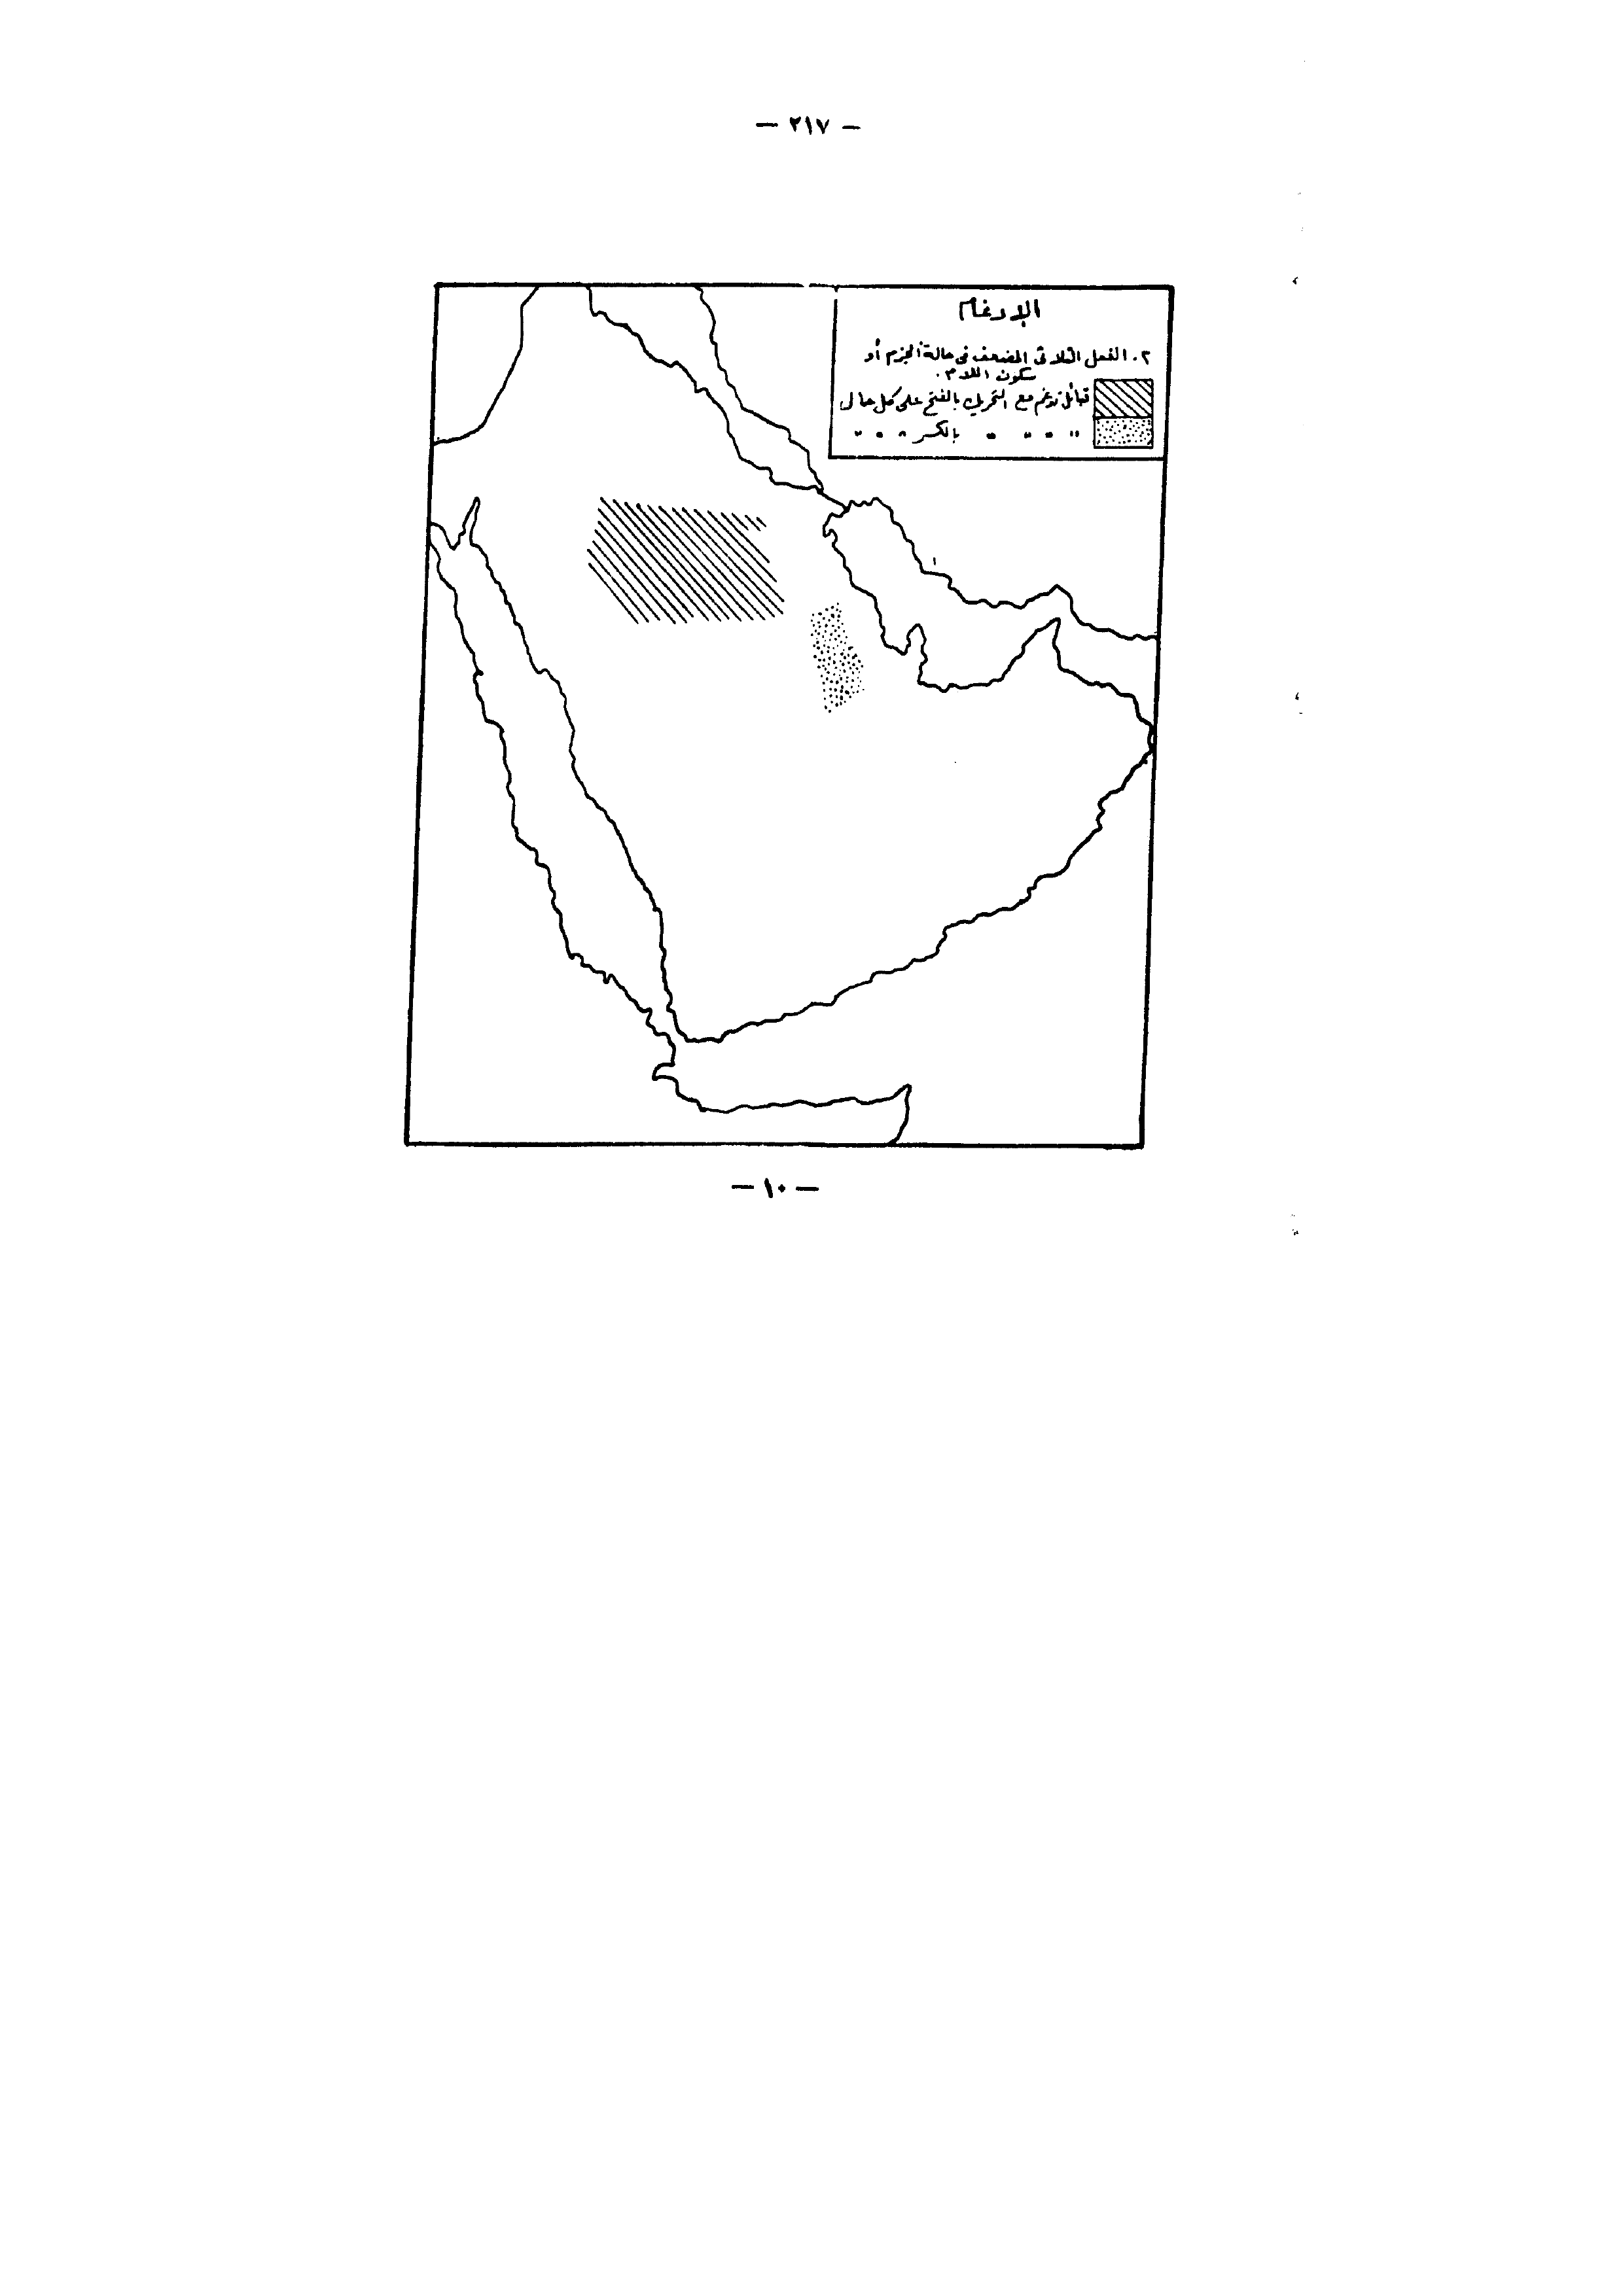 — ٢١٧ —
الإدغام
٢. الفعل الثلاثى المضعف فى حالة الجزم أو
سكون اللام.
قبائل تدغم مع التحريك بالفتح على كل حال
" " " " بالكسر " " "
— ١٠ —